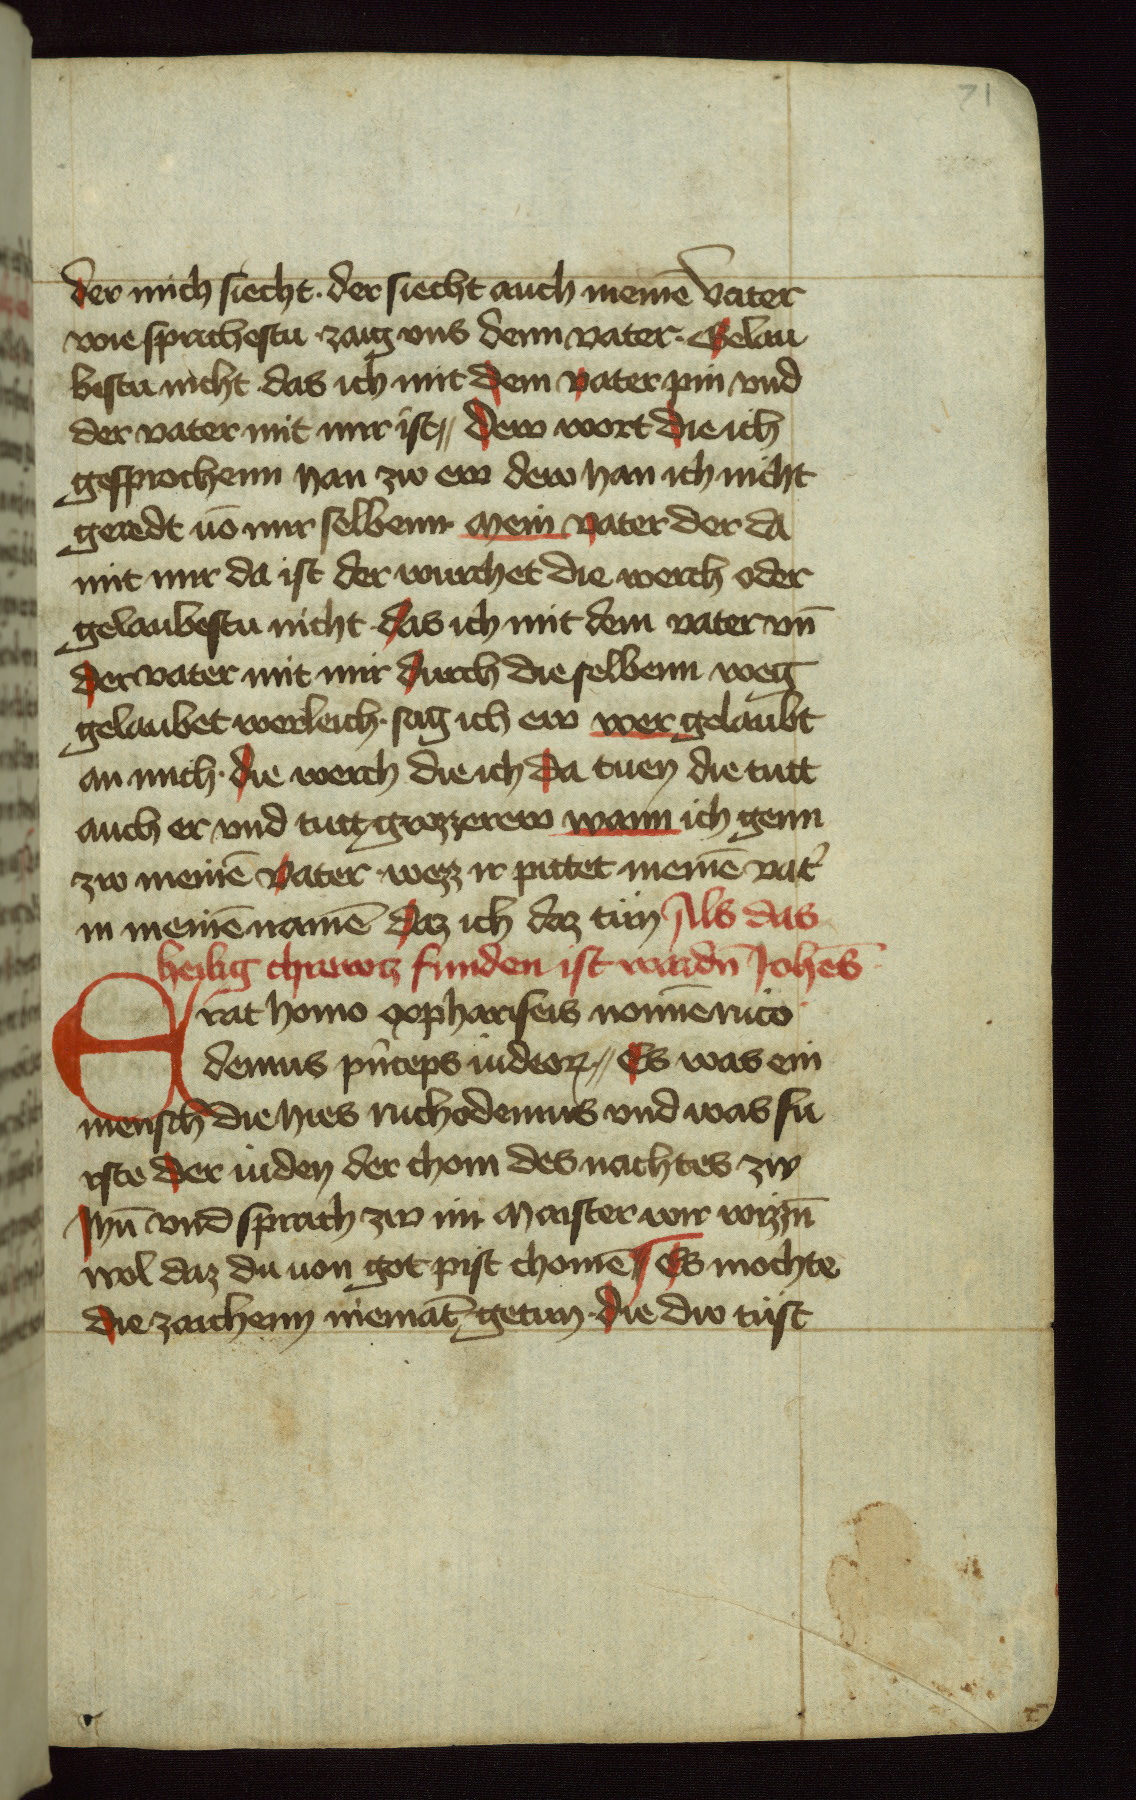 71
der mich siecht · der siecht auch meinē vater
wie sprichestu · zaig vns denn vater · Gelau
bestu nicht das ich mit dem vater pin vnd
der vater mit mir ist // Dew wort die ich
gesprochenn han zw ew dew han ich nicht
geredt uō mir selbenn Mein vater der da
mit mir da ist der wurchet die werch oder
gelaubestu nicht das ich mit dem vater vn̄
der vater mit mir durch die selbenn weg
gelaubet werleich · sag ich ew wer gelaubt
an mich · die werch die ich da tuen die tutt
auch er vnd tutt grozzerew wann ich genn
zw meinē vater · wezz ir pittet meinē vat̉
in meinē namē daz ich daz tün Als das
heilig chrawtz funden ist wardn̄ Johēs
Erat homo ex phariseis nomīe nico
demus pͥnceps iudeoꝝ // Es was ein
mensch die hies nichodemus vnd was fu
rste der iuden der chom des nachtes zw
Jhū vnd sprach zw im Maister wir wizzn̄
wol daz du uon got pist chomē Es mochte
die zaichenn niemāt getun · die dw tüst